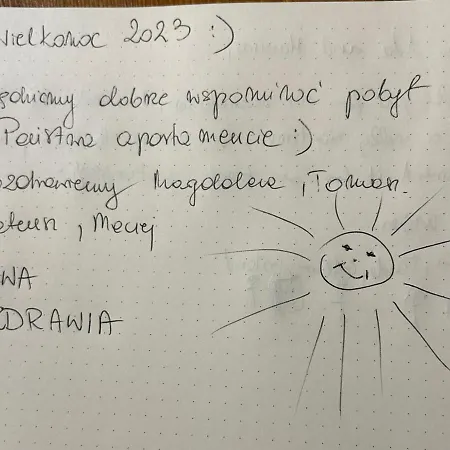 Wielkanoc 2023 :)
ędziemy dobrze wspominać pobyt
Państwa apartamencie :)
ozdrawiemy Magdalena, Toman.
, Maciej
WA
ZDRAWIA